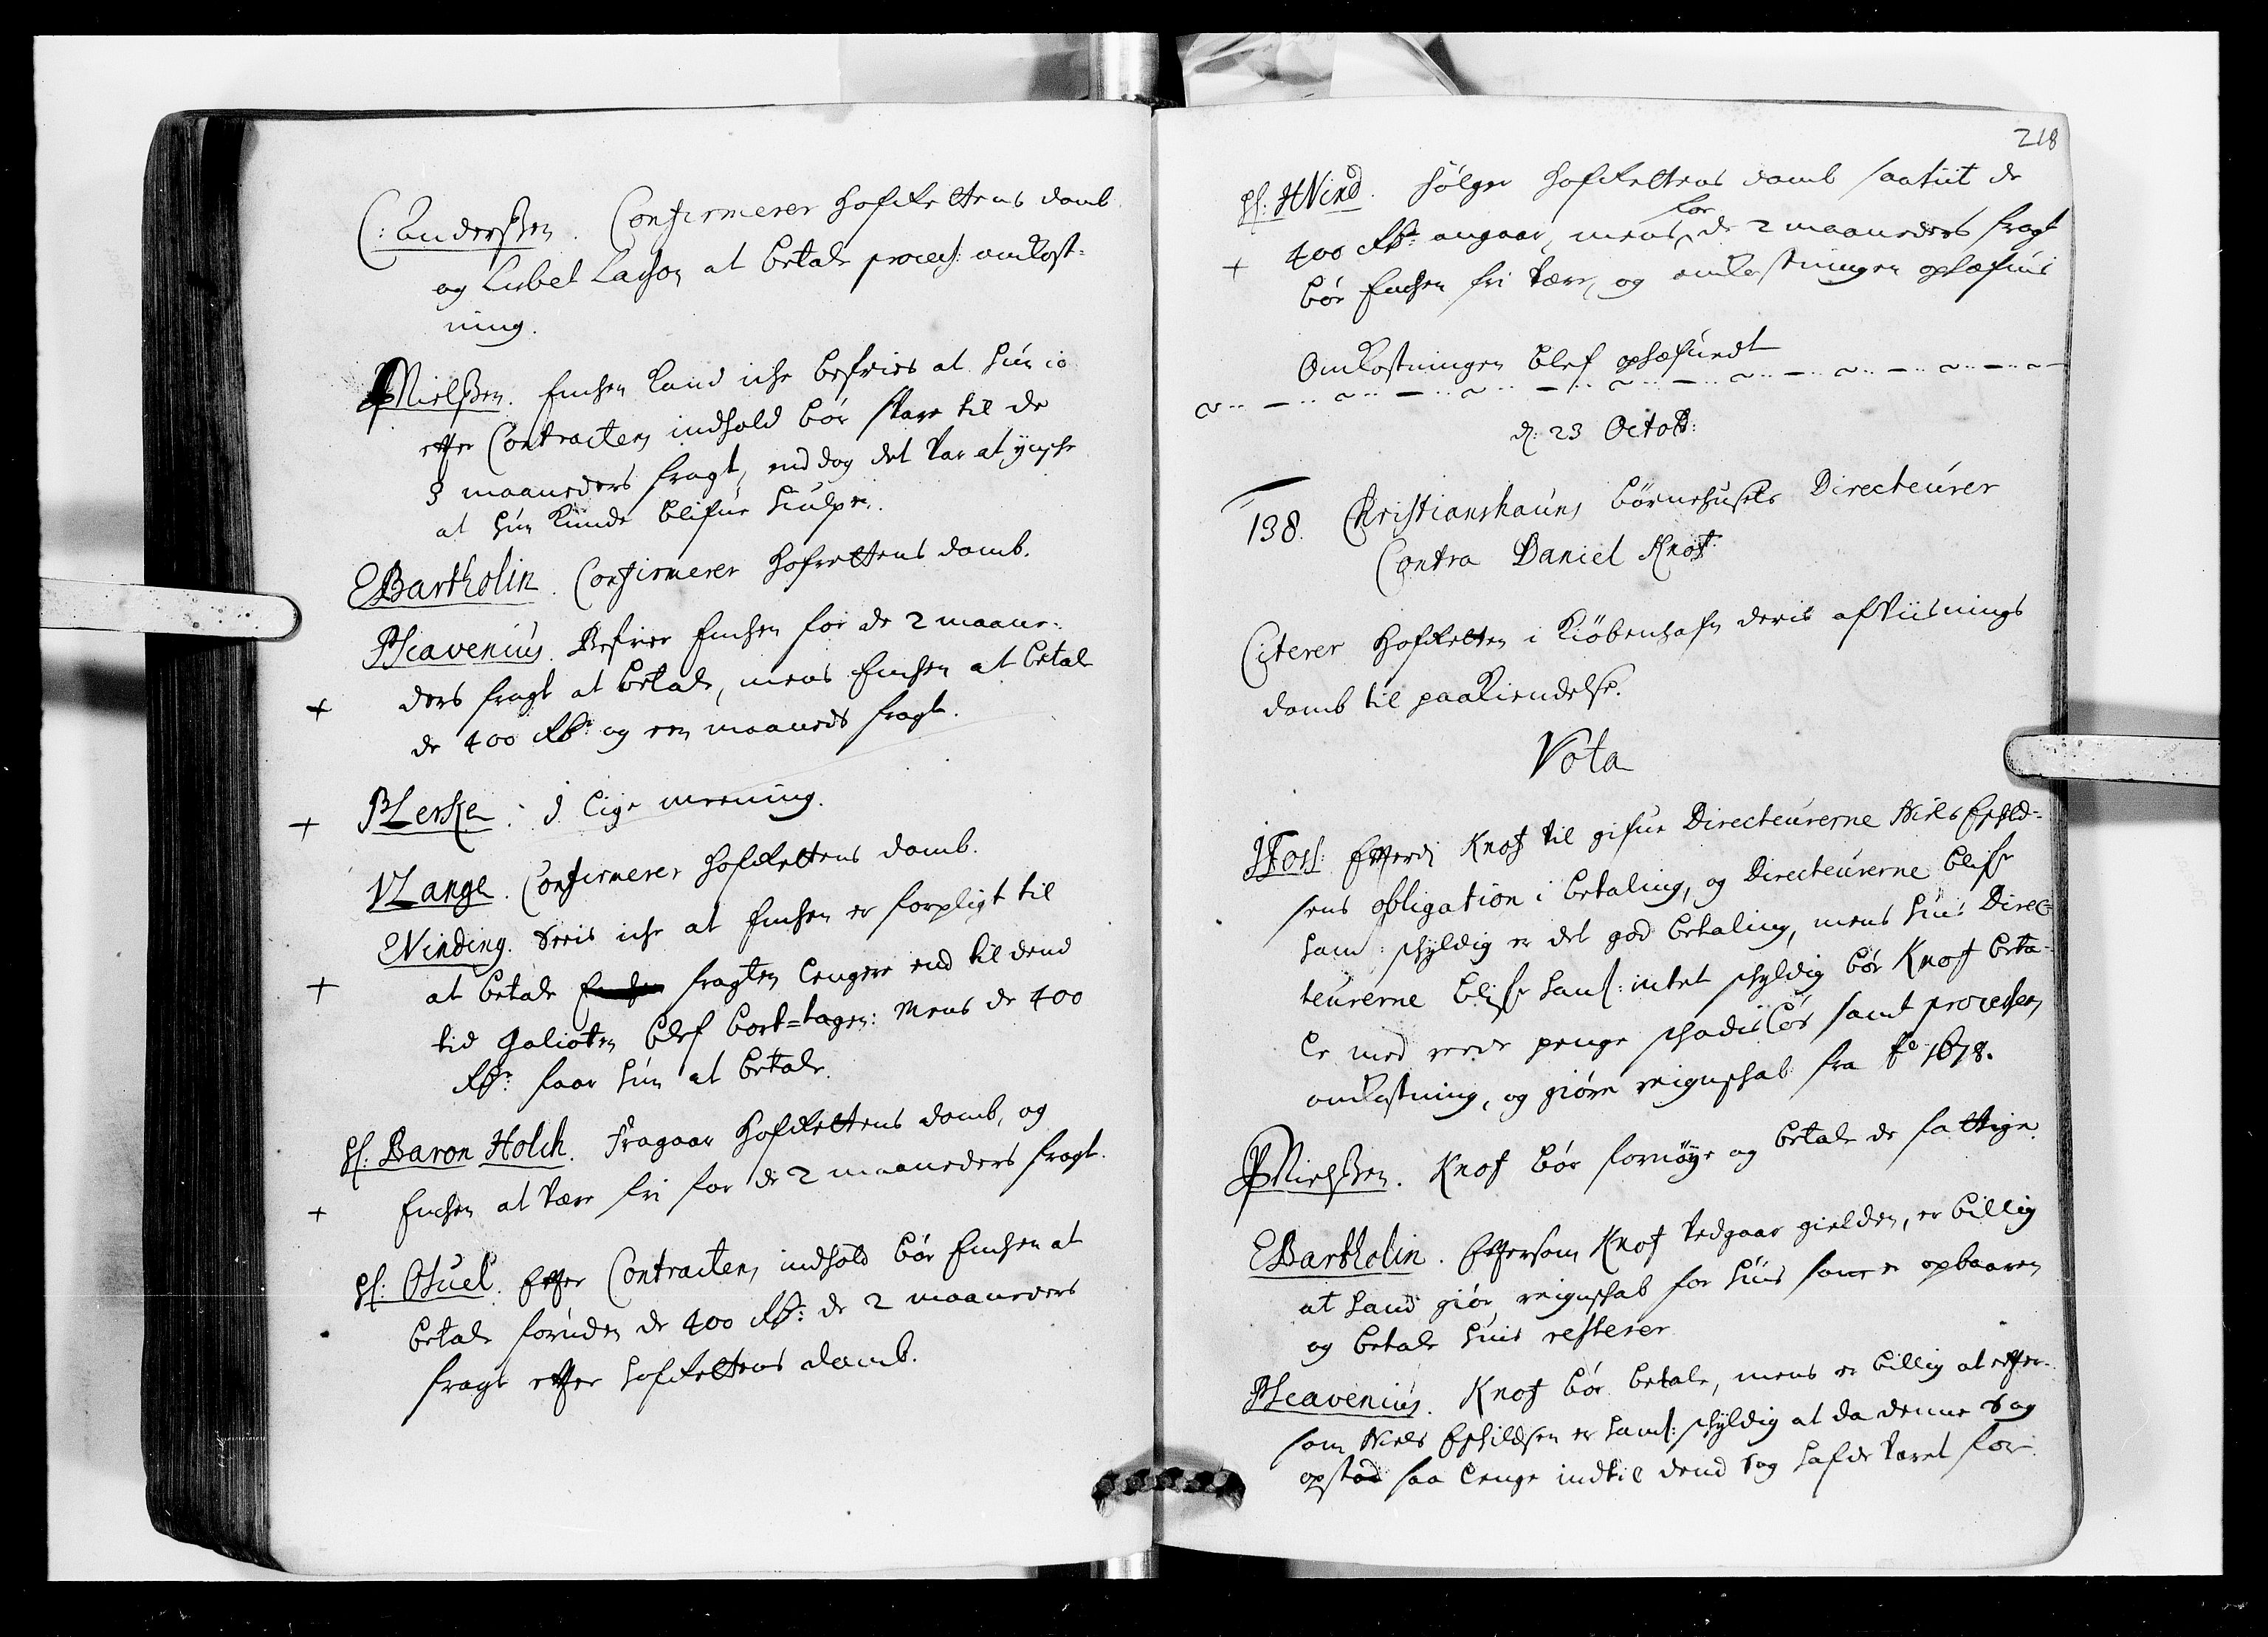 C: Anderssen. Confirmerer Hofrettens domb
og Lisbet Lachon at betale process: omkost-
ning.
PNielssen. Enchen kand iche befries at hun io
effter Contracten indhold bør svare til de
3 maaneders fragt, end dog det var at ynsche
at hun kunde blifve hiulpen.
EBartholin. Confirmerer Hofrettens domb.
PScavenius. Befrier Enchen for de 2 maane-
ders fragt at betale, mens Enchen at betale
+
de 400 Rdr: og een maaneds fragt.
+ BLerke. I lige meening.
VLange. Confirmerer Hofrettens domb.
EVinding. Seeis iche at Enchen er forpligt til
+
at betale fragten lengere end til dend
tid Galioten blef bort-tagen: Mens de 400
Rdr: faar hun at betale.
H: Baron Holck. Fragaar Hofrettens domb, og
+ Enchen at være fri for de 2 maaneders fragt.
H: Osuel. Effter Contracten indhold bør Enchen at
betale foruden de 400 Rdr: de 2 maaneders
fragt effter Hofrettens domb.
218
H: HVind. Følger Hofrettens domb saavit de
for
+ 400 Rdr: angaar, mens de 2 maaneders fragt
bør Enchen fri være, og omkostningen ophæfvis
Omkostningen blef ophæfvedt
d: 23 Octob:
138. Christianshauns børnehuses Directeurer
Contra Daniel Knof.
Citerer Hofretten i Kiøbenhafn deris afviisnings
domb til paakiendelse.
Vota
JFoss: Efterdi Knof vil gifve Directeurerne Niels Eschild-
sens obligation i betaling, og Directeurerne blifve
ham: schyldig er det god betaling, mens huis Direc-
teurerne blifve ham: intet schyldig bør Knof beta-
le med reede penge schadisløs samt processen
omkostning, og giøre reignschab fra Ao 1678.
PNielssen. Knof bør fornøye og betale de fattige.
EBartholin. Eftersom Knof vedgaar gielden, er billig
at hand giør reignschab for huis som er opbaaren
og betale huis resterer
PScavenius. Knof bør betale, mens er billig at effter-
som Niels Eschildsen er ham: schyldig at da denne sag
opstod saa lenge indtil dend sag hafde været for